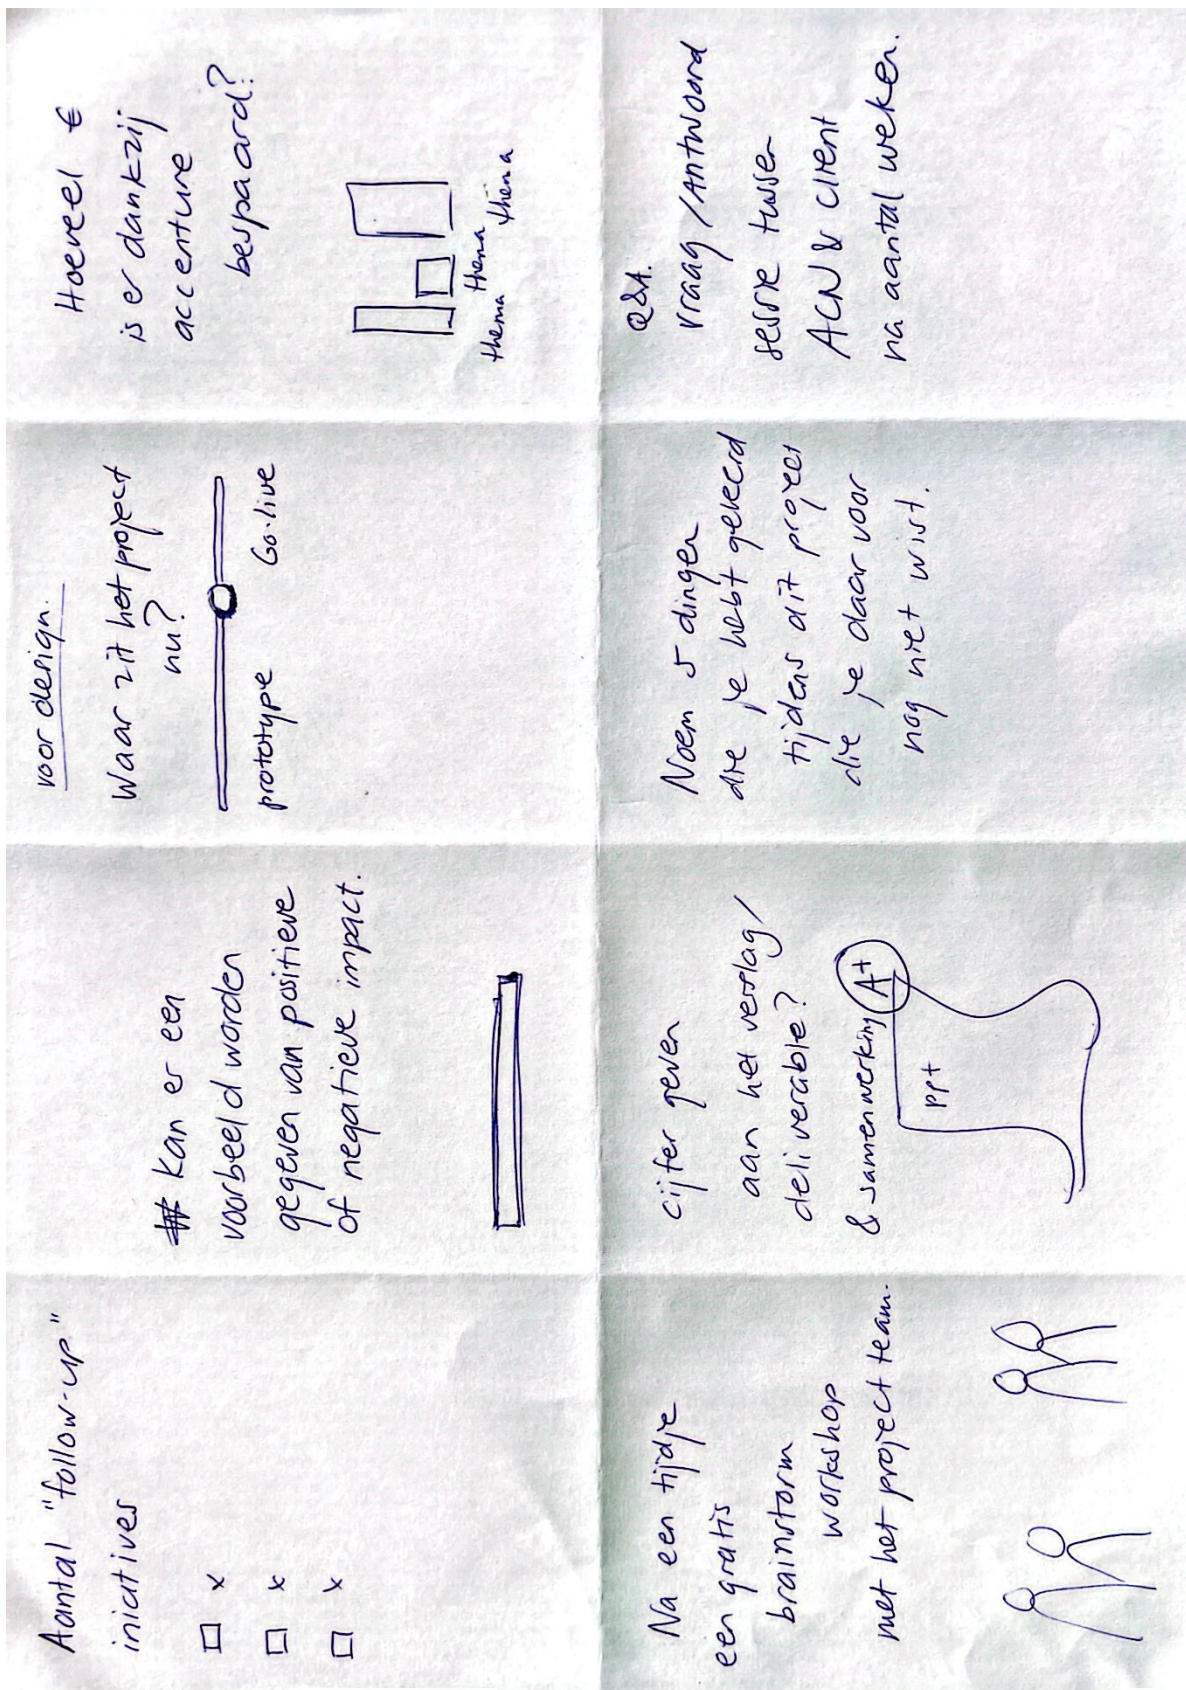 Aantal "follow-up"
iniatives
x
x
x
Kan er een
voorbeeld worden
gegeven van positieve
of negatieve impact.
voor design.
Waar zit het project
nu?
prototype Go-live
Hoeveel €
is er dankzij
accenture
bespaard?
thema thema thema
Na een tijdje
een gratis
brainstorm
workshop
met het project team.
cijfer geven
aan het verslag/
deliverable?
& samenwerking A+
PPt
Noem 5 dingen
die je hebt geleerd
tijdens dit project
die je daar voor
nog niet wist.
Q&A.
vraag/Antwoord
sessie tussen
ACN & client
na aantal weken.